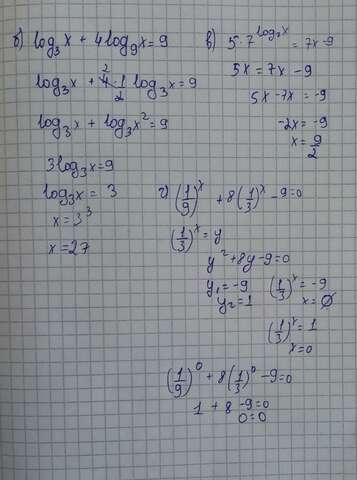 б) log₃x + 4log₉x = 9
log₃x + 4² · 1/2 log₃x = 9
log₃x + log₃x² = 9
3log₃x = 9
log₃x = 3
x = 3³
x = 27
в) 5 · 7^(log₇x) = 7x - 9
5x = 7x - 9
5x - 7x = -9
-2x = -9
x = 9/2
г) (1/9)ˣ + 8(1/3)ˣ - 9 = 0
(1/3)ˣ = y
y² + 8y - 9 = 0
y₁ = -9 (1/3)ˣ = -9
y₂ = 1 x = ∅
(1/3)ˣ = 1
x = 0
(1/9)⁰ + 8(1/3)⁰ - 9 = 0
1 + 8 - 9 = 0
0 = 0